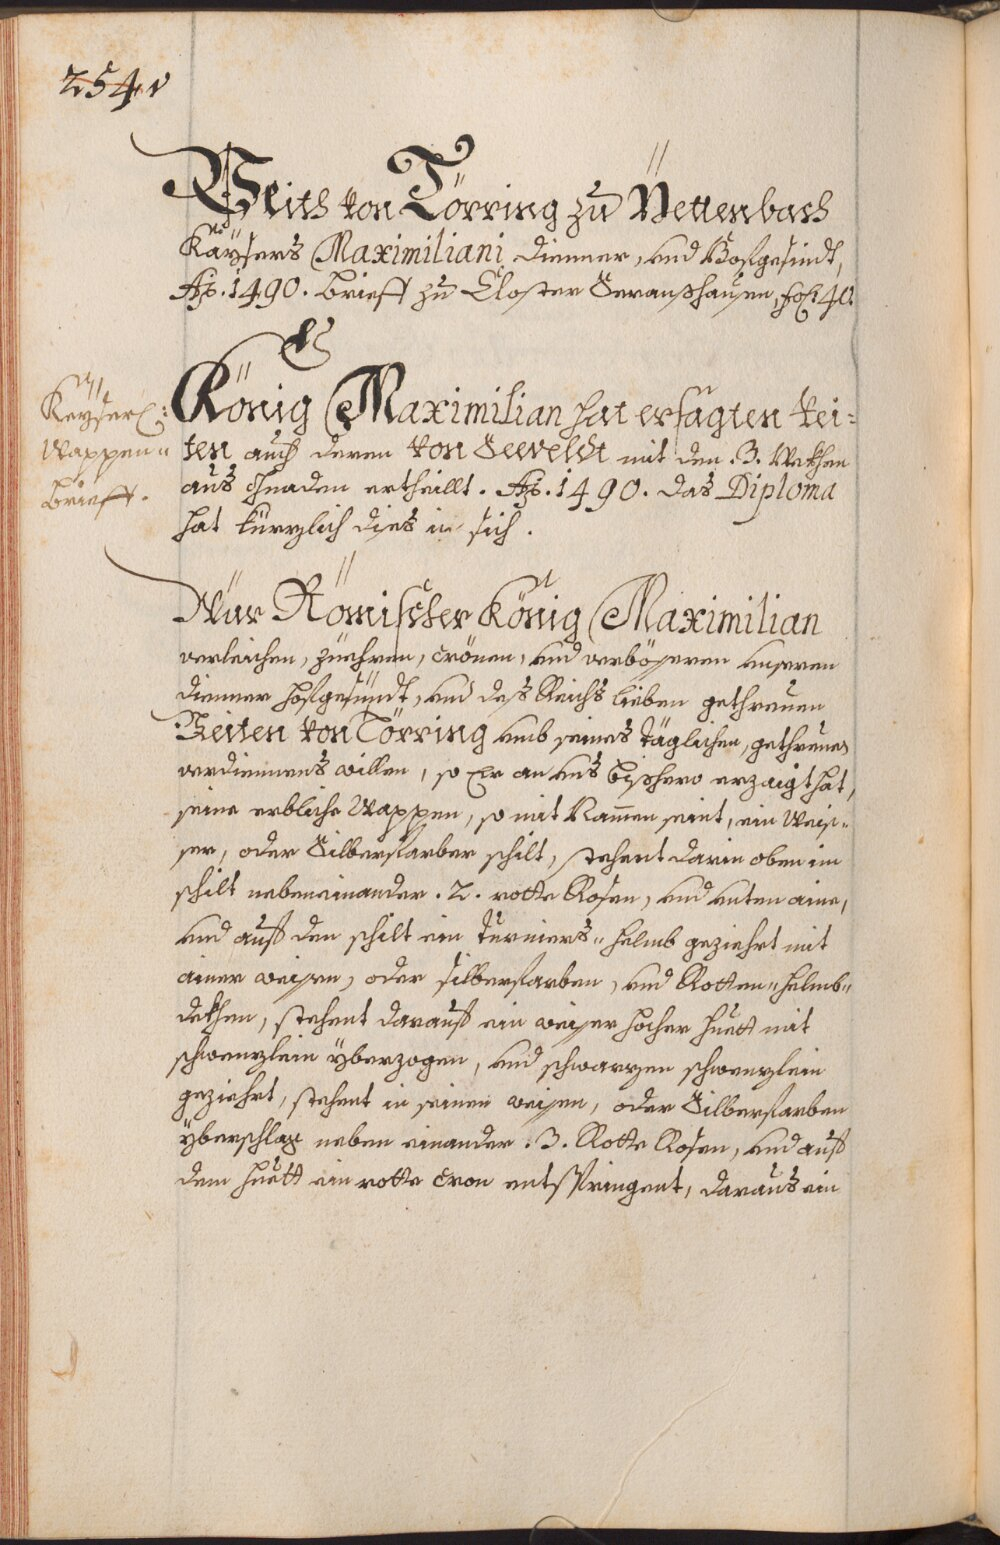 254v
Veith von Törring zu Pettenbach
Kaÿsers Maximiliani Dienner, und Hofgesindt,
Aō. 1490. Brieff zu Closter Seeranßhausen, fol: 40.
König Maximilian hat ersagten Vei=
ten auch deren von Seeveldt mit den .3. Wekhen
aus Gnaden ertheillt. Aō. 1490. das Diploma
hat kürzlich dises in sich.
Keÿserl:
Wappen"
Brieff.
Wür Römischer König Maximilian
verleichen, Züehren, Crönen, und verbösseren unseren
Dienner Hofgesündt, und deß Reichs lieben gethreuen
Veiten von Törring umb seines täglichen, gethreuen
verdiennens willen, so Er an uns bißhero erzaigt hat,
seine erbliche Wappen, so mit Namen seint, ein Weis"
ser, oder Silberfarber schilt, stehent darin oben im
schilt nebeneinander .2. rotte Rosen, und unten aine,
und auf den schilt ein Turniers" Helmb geziehrt mit
ainer weissen, oder silberfarben, und Rotten" Helmb"
dekhen, stehent darauf ein weisser hocher Huett mit
schwenzlein überzogen, und schwarzen schwenzlein
geziehrt, stehent in seinen weissen, oder Silberfarben
überschlag neben einander .3. Rotte Rosen, und auf
dem Huett ein rotte Cron entspringent, daraus ein